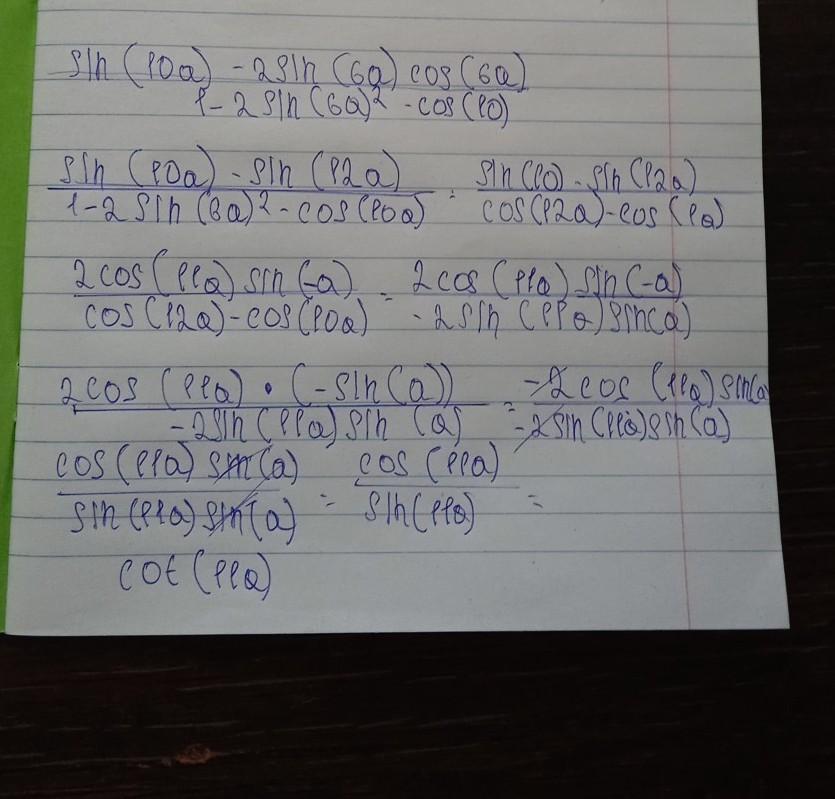 sin (10a) - 2 sin (6a) cos (6a)
1 - 2 sin (6a)² - cos (10)
sin (10a) - sin (12a) = sin (10) - sin (12a)
1 - 2 sin (6a)² - cos (10a) cos (12a) - cos (1a)
2 cos (11a) sin (-a) = 2 cos (11a) sin (-a)
cos (12a) - cos (10a) - 2 sin (11a) sin (a)
2 cos (11a) · (- sin (a)) = -2 cos (11a) sin (a
-2 sin (11a) sin (a) -2 sin (11a) sin (a)
cos (11a) sin (a) = cos (11a) =
sin (11a) sin (a) sin (11a)
cot (11a)